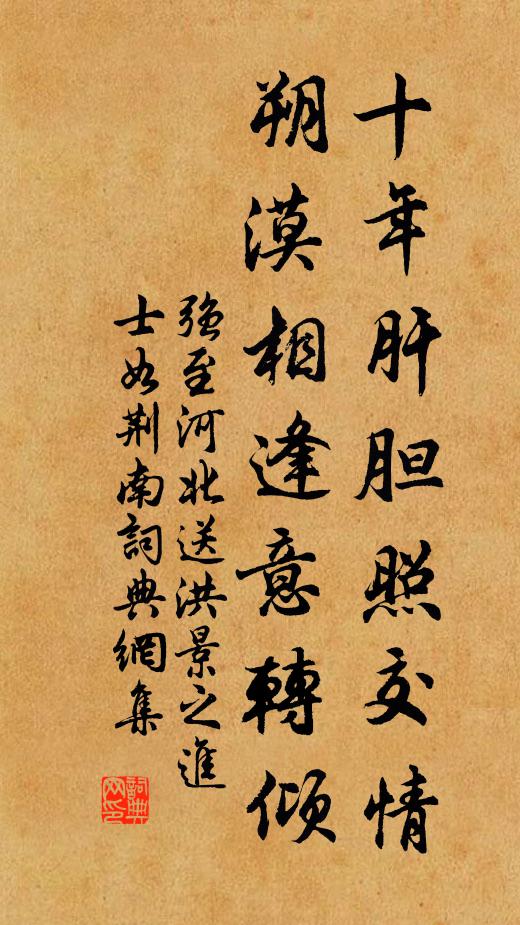 十年肝胆照交情
朔漠相逢意轉傾
強至河北送洪景之進
士如荆南詞典網集
詞典网印